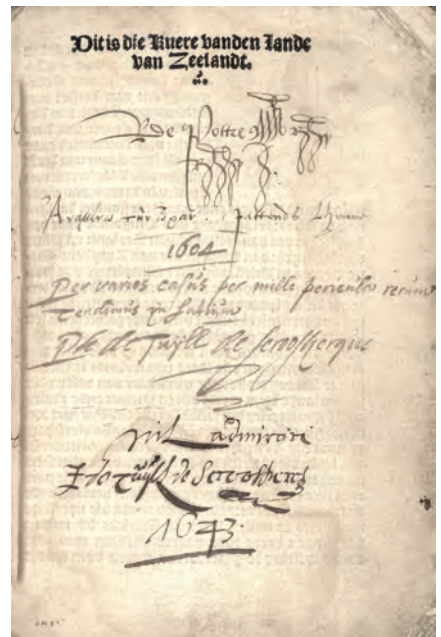 Dit is die Kuere vanden Lande
van Zeelandt.
de Pottre
pattends Lheure
1604
Per varios casus per mille pericula rerum
Tendimus in Latium
Ph de Tuÿll de Serooskerque
nil admirari
de Tuÿll de Serooskercke
1643.